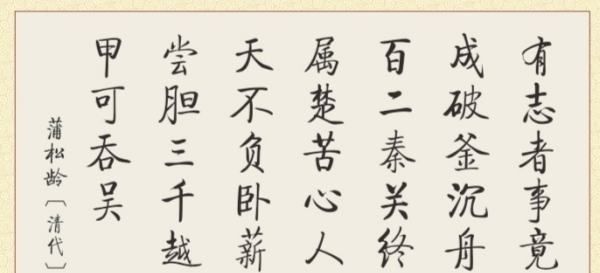 有志者事竟
成破釜沉舟
百二秦关终
属楚苦心人
天不负卧薪
尝胆三千越
甲可吞吴
蒲松龄〔清代〕